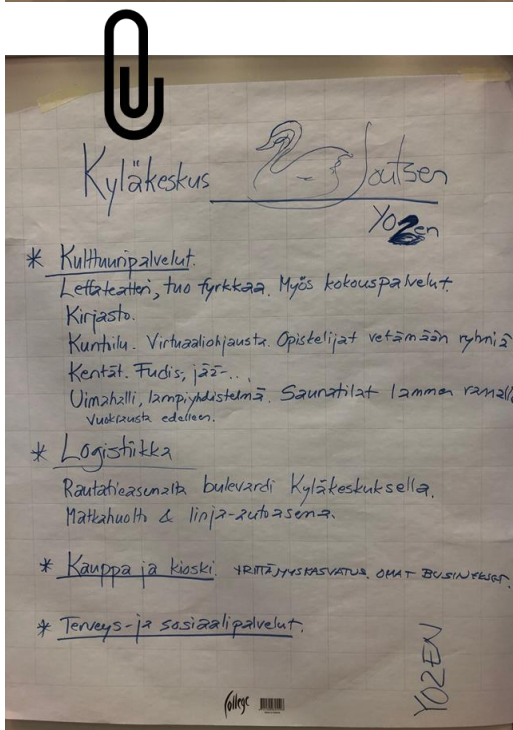 Kyläkeskus Joutsen
YO2en
* Kulttuuripalvelut.
Leffateatteri, tuo fyrkkaa. Myös kokouspalvelut.
Kirjasto.
Kuntoilu. Virtuaaliohjausta. Opiskelijat vetämään ryhmiä
Kentät. Fudis, jää-...
Uimahalli, lampiyhdistelmä. Saunatilat lammen rannalla
vuokrausta edelleen.
* Logistiikka
Rautatieasemalta bulevardi Kyläkeskuksella.
Matkahuolto & linja-autoasema.
* Kauppa ja kioski. YRITTÄJYYSKASVATUS. OMAT
* Terveys- ja sosiaalipalvelut.
YO2EN
College